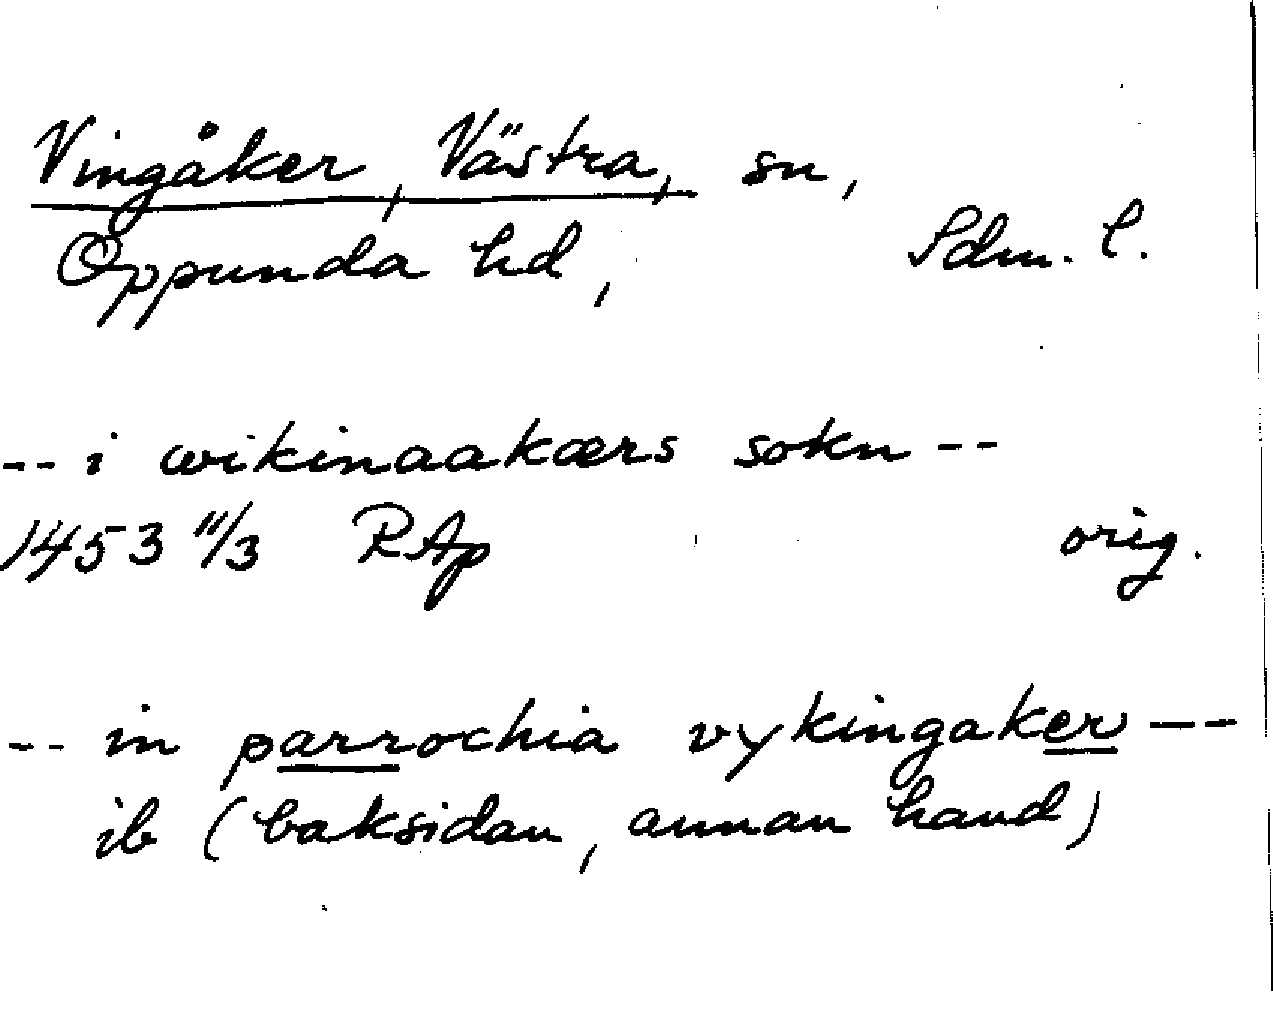 Vingåker, Västra, sn,
Oppunda hd, Sdm. l.
-- i wikinaakærs sokn --
1453 11/3 RAp orig.
-- in parrochia vykingaker --
ib (baksidan, annan hand)